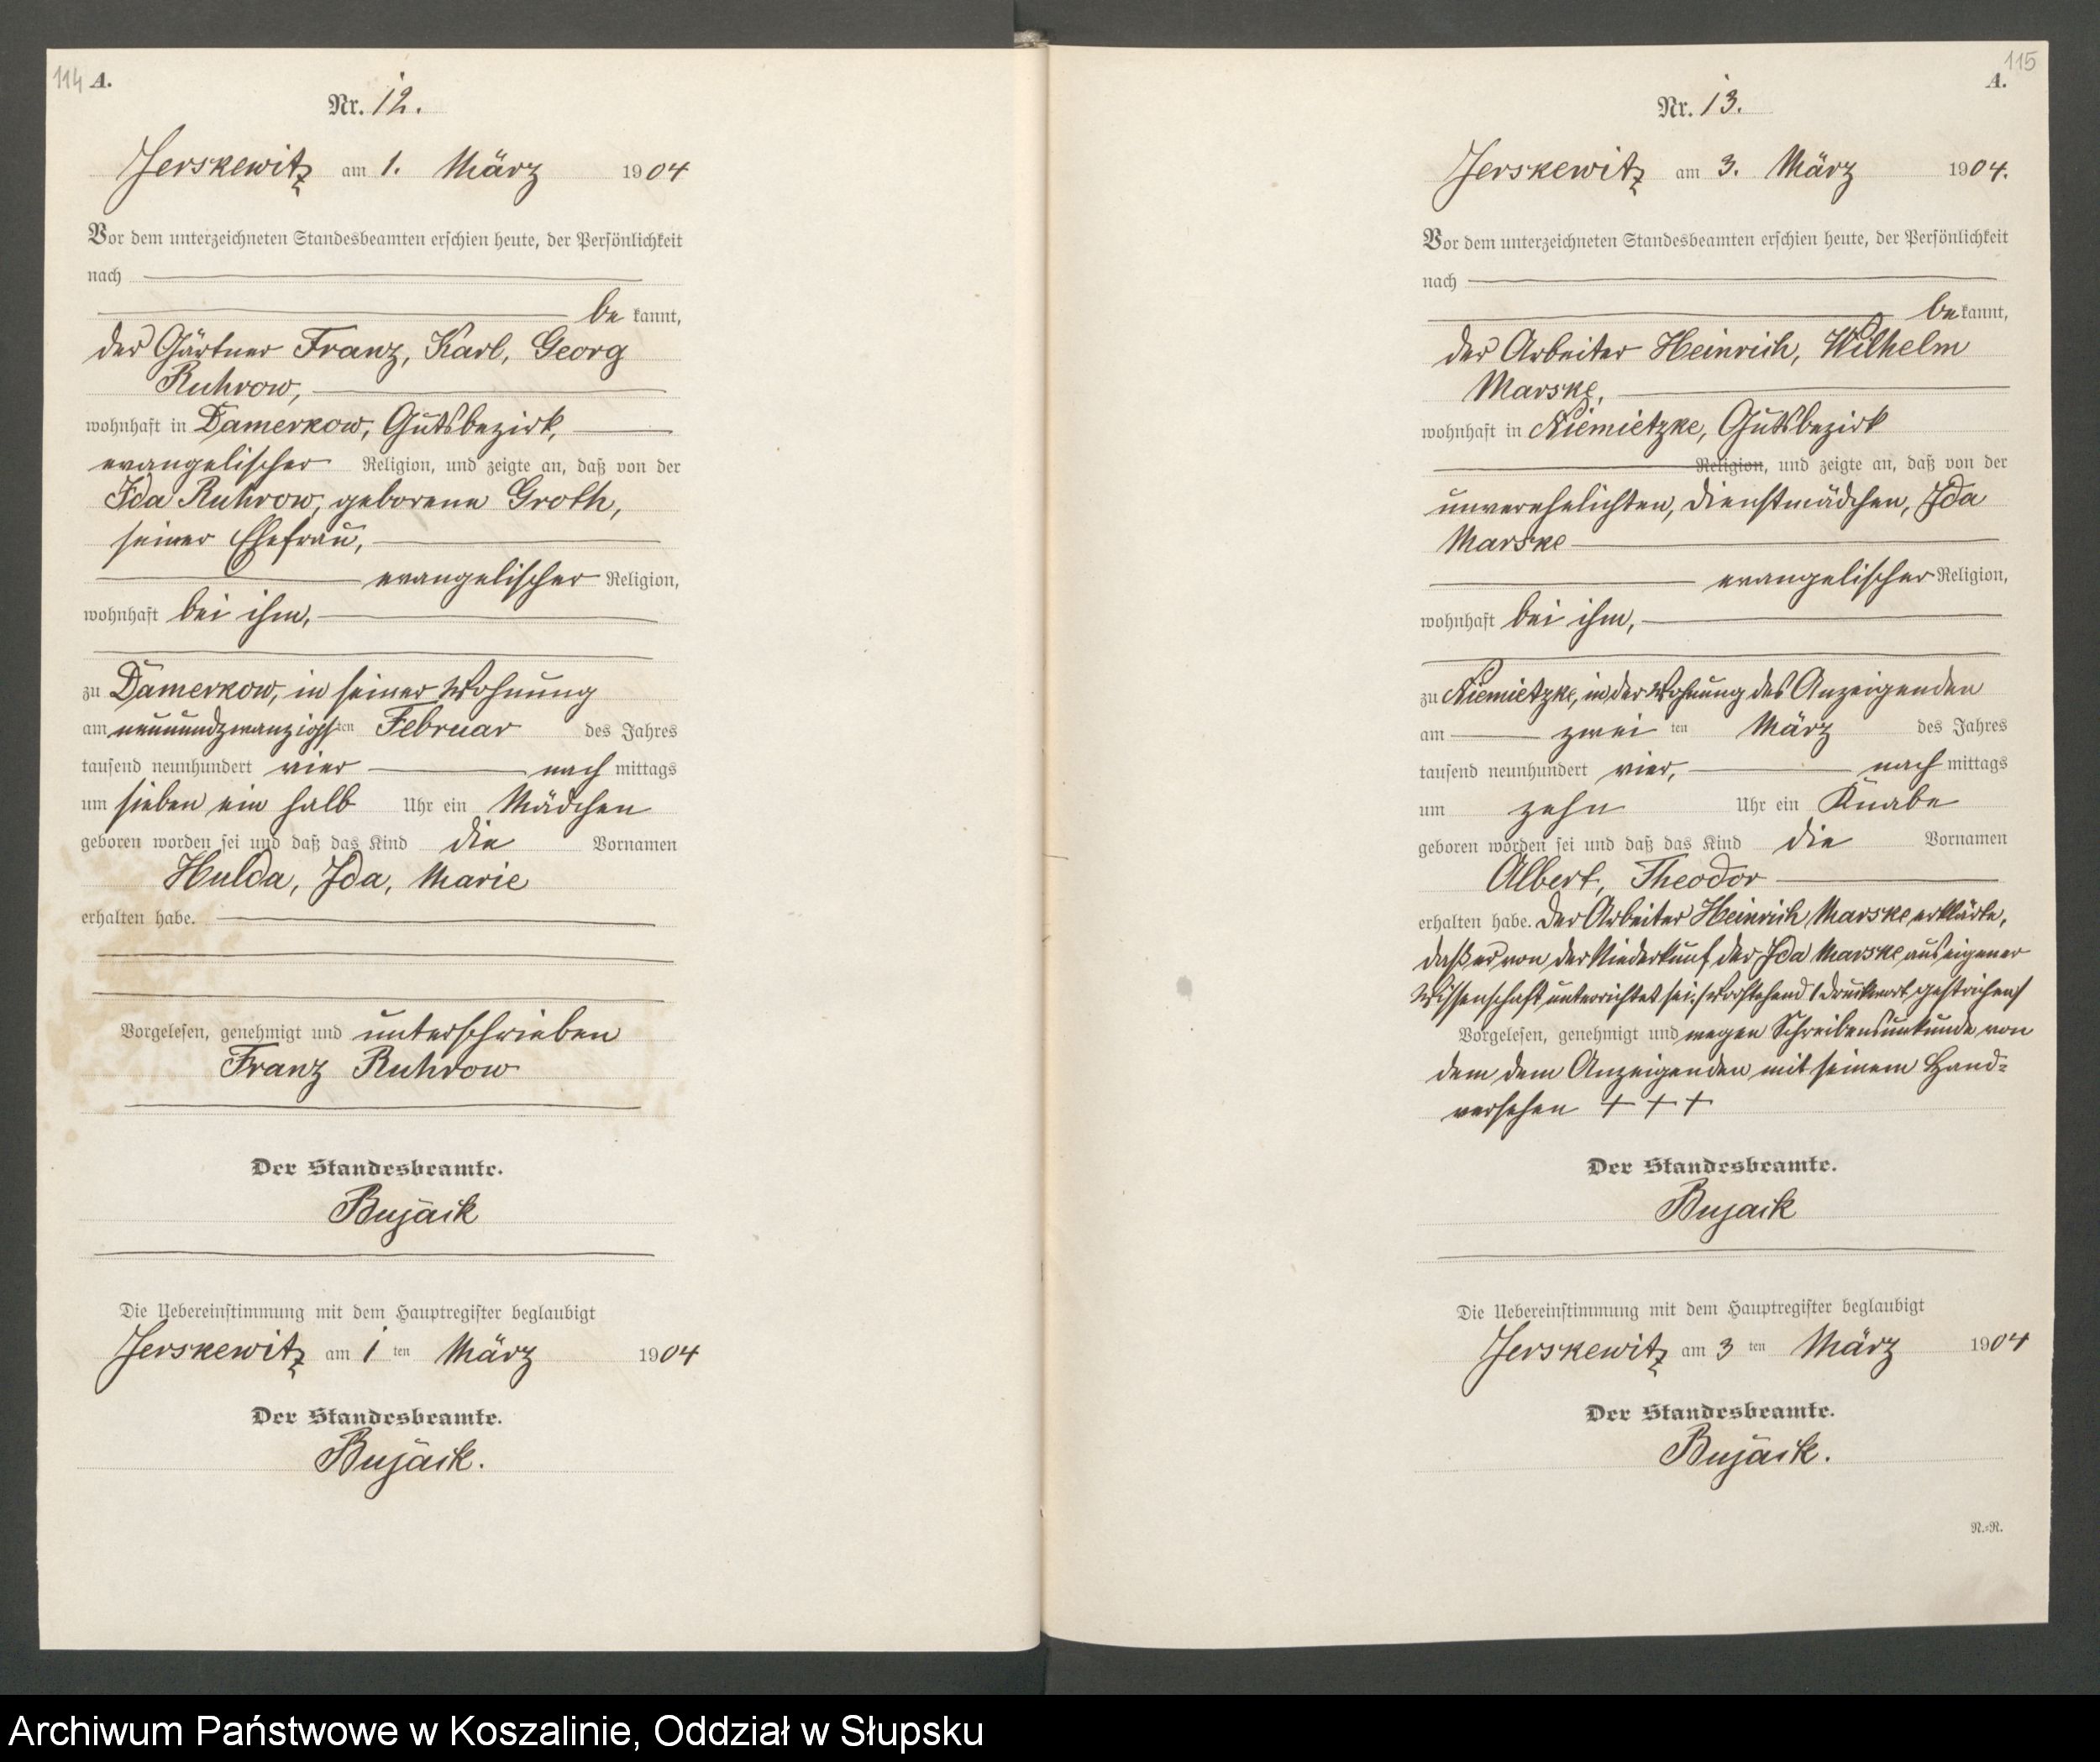 114 A.
Nr. 12.
Jerskewitz am 1. März 1904
Vor dem unterzeichneten Standesbeamten erschien heute, der Persönlichkeit
nach
be kannt,
der Gärtner Franz, Karl, Georg
Ruhrow,
wohnhaft in Damerkow, Gutsbezirk,
evangelischer Religion, und zeigte an, daß von der
Ida Ruhrow, geborene Groth,
seiner Ehefrau,
evangelischer Religion,
wohnhaft bei ihm,
zu Damerkow, in seiner Wohnung
am neunundzwanzigsten Februar des Jahres
tausend neunhundert vier nach mittags
um sieben ein halb Uhr ein Mädchen
geboren worden sei und daß das Kind die Vornamen
Hulda, Ida, Marie
erhalten habe.
Vorgelesen, genehmigt und unterschrieben
Franz Ruhrow
Der Standesbeamte.
Bujack
Die Uebereinstimmung mit dem Hauptregister beglaubigt
Jerskewitz am 1 ten März 1904
Der Standesbeamte.
Bujack.
115
A.
Nr. 13.
Jerskewitz am 3. März 1904.
Vor dem unterzeichneten Standesbeamten erschien heute, der Persönlichkeit
nach
be kannt,
der Arbeiter Heinrich, Wilhelm
Marske,
wohnhaft in Niemietzke, Gutsbezirk
Religion, und zeigte an, daß von der
unverehelichten, Dienstmädchen, Ida
Marske
evangelischer Religion,
wohnhaft bei ihm,
zu Niemietzke, in der Wohnung des Anzeigenden
am zwei ten März des Jahres
tausend neunhundert vier, nach mittags
um zehn Uhr ein Knabe
geboren worden sei und daß das Kind die Vornamen
Albert, Theodor
erhalten habe. Der Arbeiter Heinrich Marske erklärte,
daß er von der Niederkunf der Ida Marske aus eigener
Wissenschaft unterrichtet sei. /Vorstehend 1 Druckwort gestrichen/
Vorgelesen, genehmigt und wegen Schreibensunkunde von
dem dem Anzeigenden mit seinem Hand=
versehen + + +
Der Standesbeamte.
Bujack
Die Uebereinstimmung mit dem Hauptregister beglaubigt
Jerskewitz am 3 ten März 1904
Der Standesbeamte.
Bujack.
N.=R.
Archiwum Państwowe w Koszalinie, Oddział w Słupsku